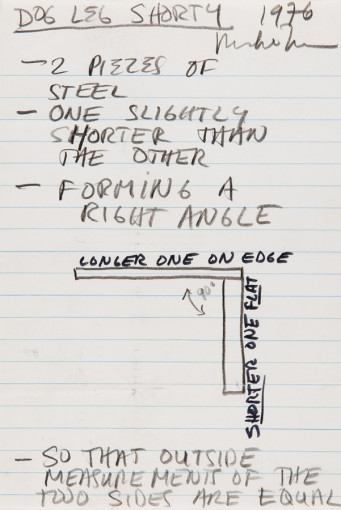 DOG LEG SHORTY 1976
— 2 PIEZES OF
STEEL
— ONE SLIGHTLY
SHORTER THAN
THE OTHER
— FORMING A
RIGHT ANGLE
LONGER ONE ON EDGE
90°
SHORTER ONE FLAT
— SO THAT OUTSIDE
MEASUREMENTS OF THE
TWO SIDES ARE EQUAL